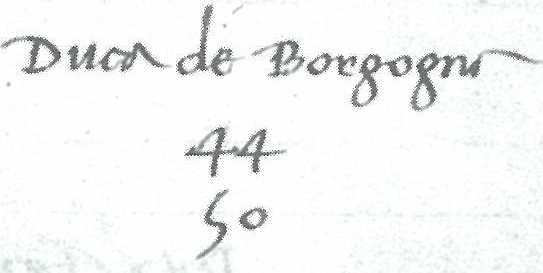 Duca de Borgogna
44
50